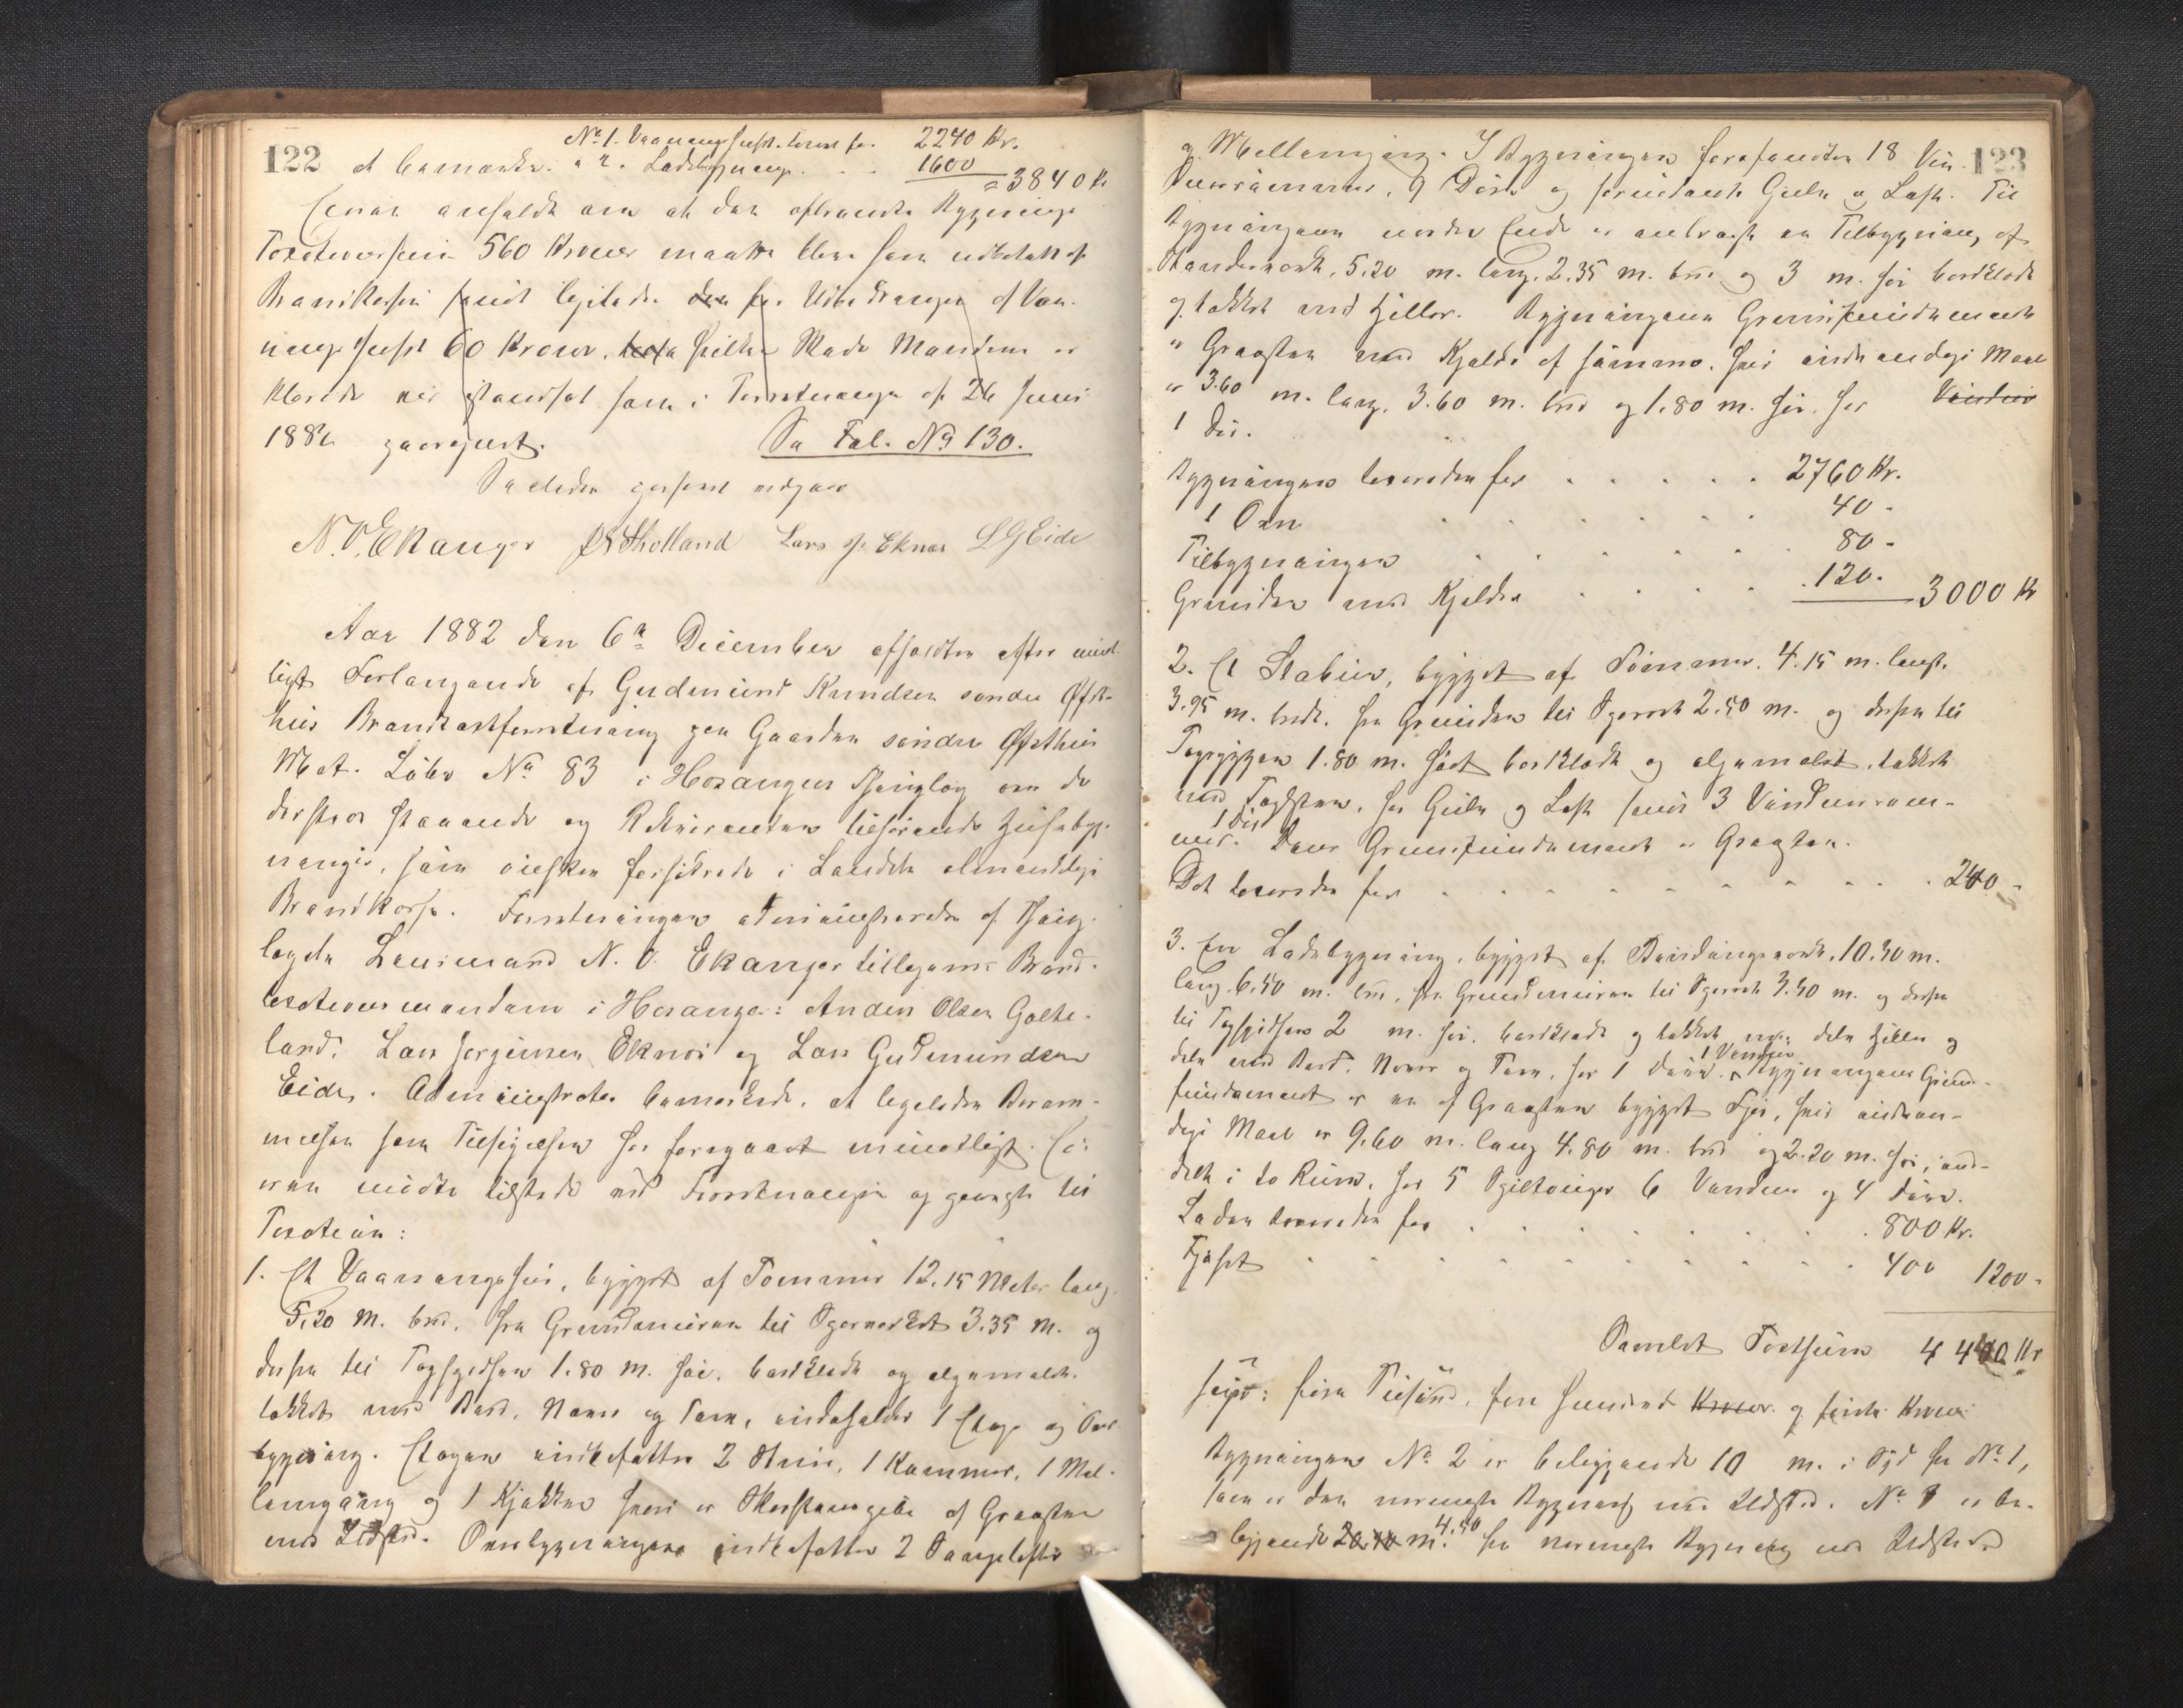 No 1. Vaaningshuset taxeret for 2240 Kr.
122 at bemærke. " 2. Ladebygning . . . 1600
= 3840 Kr
Eieren anholdt om at den afbrændte Bygnings
Taxationssum 560 Kroner maatte blive ham udbetalt af
Brandkassen samt ligeledes den for Udbedringen af Vaa-
ningshuset 60 Kroner, hvilken Skade Mændene er-
klærede var istandsat som i Forretningen af 26 Juni
1882 paavist. Se Fol. No 130.
Saaledes passeret udgives
N. O. Ekanger Lars J. Eknæs L G Eide
Aar 1882 den 6te December afholdtes efter mundt-
ligt Forlangende af Gudmund Knudsen søndre Øst-
hus Brandtaxtforretning paa Gaarden søndre Østhus
Mat. Løbe No 83 i Hosanger Thinglag over de
dersteds staaende og Rekvirenten tilhørende Husebyg-
ninger, som ønskes forsikrede i Landets almindelige
Brandkasse. Forretningen administreredes af Thing-
lagets Lensmand N. O. Ekanger tilligemed Brand-
taxationsmændene i Hosanger: Anders Olsen Golte-
land, Lars Jørgensen Eknæs og Lars Gudmundsen
Eide. Administrator bemærkede, at ligeledes Beram-
melsen som Tilsigelsen har foregaaet mundtligt. Ei-
eren mødte tilstede ved Forretningen og paaviste til
Taxation:
1. Et Vaaningshus, bygget af Tømmer 12.15 Meter lang,
5,20 M. bred, fra Grundmuren til Sperrerødst 3.35 M. og
derfra til Tagspidsen 1.80 M. høi, bordklædt og oljemalet,
tækket med Bord, Næver og Tørv, indeholder 1 Etage og Over-
bygning. Etagen indbefatter 2 Stuer, 1 Kammer, 1 Mel-
lemgang og 1 Kjøkken hvori er Skorstenspibe af Graasten
med Ildsted. Overbygningen indbefatter 2 Sengelofter
123
og Mellemgang. I Bygningen forefindes 18 Vin-
duesrammer, 9 Døre og fornødent Gulv og Loft. Til
Bygningens nordre Ende er anbragt en Tilbygning af
Standerværk, 5.20 m. lang, 2.35 m. bred og 3 m. høi bordklædt
og tækket med Heller. Bygningens Grundfundament
er Graasten med Kjelder af samme, hvis indvendige Maal
er 3.60 m. lang, 3.60 m. bred og 1.80 m. høi, har Vinduer
1 Dør.
Bygningen taxeredes for . . . . . 2760 Kr.
1 Ovn . . . . . . 40 -
Tilbygningen . . . . . . 80 -
Grunden med Kjelder . . . . . 120. 3000 Kr
2. Et Stabur, bygget af Tømmer, 4.15 m. langt,
3.95 m. bredt, fra Grunden til Sperrerødst 2.50 m. og derfra til
Tagryggen 1.80 m. høit bordklædt og oljemalet, tækket
med Tagsten, har Gulv og Loft samt 3 Vinduesram-
mer. 1 Dør Dens Grundfundament er Graasten.
Det taxeredes for . . . . . . . . . . 240 -
3. En Ladebygning, bygget af Bindingsværk, 10.30 m.
lang, 6.50 m. bred, fra Grundmuren til Sperrerødst 3.50 m. og derfra
til Tagspidsen 2 m. høi, bordklædt og tækket med dels Heller og
dels med Bord, Næver og Tørv, har 1 Dør. 1 Vindue Bygningens Grund-
fundament er en af Graasten bygget Fjøs, hvis indven-
dige Maal er 9.60 m. lang 4.80 m. bred og 2.20 m. høi, ind-
delt i to Rum, har 5 Spiltouge 6 Vinduer og 4 Døre.
Laden taxeredes for . . . . . . 800 Kr.
Fjøset . . . . . . . . . 400 1200 -
Samlet Taxtsum 4440 Kr
siger: fire Tusind, fire hundrede Kroner og firti Kroner
Bygningen No 2 er beliggende 10 m. i Syd fra No 1,
som er den nærmeste Bygning med Ildsted. No 3 er be-
liggende 20.40 m. 4.50 fra nærmeste Bygning med Ildsted